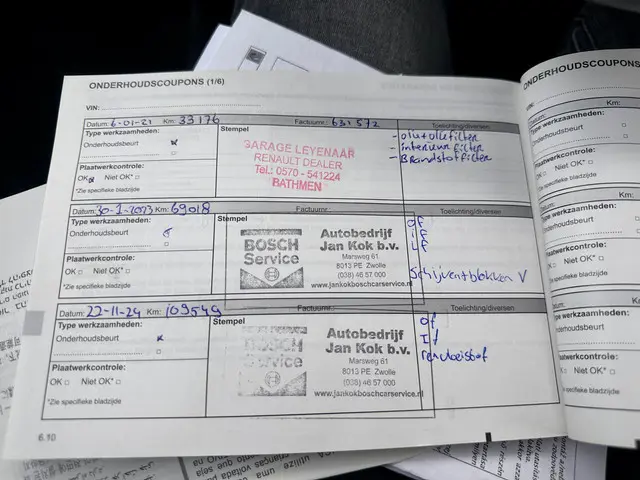 ONDERHOUDSCOUPONS (1/6)
VIN:
Datum: 6-01-21 Km: 33176 Factuurnr.: 631572 Toelichting/diversen
Type werkzaamheden:
Onderhoudsbeurt
Plaatwerkcontrole:
OK Niet OK*
*Zie specifieke bladzijde
Stempel
GARAGE LEYENAAR
RENAULT DEALER
Tel.: 0570 - 541224
BATHMEN
- olie + oliefilter
- interieurfilter
- Brandstoffilter
Datum: 30-1-2023 Km: 69018 Factuurnr.: Toelichting/diversen
Type werkzaamheden:
Onderhoudsbeurt
Plaatwerkcontrole:
OK Niet OK*
*Zie specifieke bladzijde
Stempel
BOSCH
Service
Autobedrijf
Jan Kok b.v.
Marsweg 61
8013 PE Zwolle
(038) 46 57 000
www.jankokboschcarservice.nl
of
if
Lf
Schijven+blokken V
Datum: 22-11-24 Km: 109549 Factuurnr.: Toelichting/diversen
Type werkzaamheden:
Onderhoudsbeurt
Plaatwerkcontrole:
OK Niet OK*
*Zie specifieke bladzijde
Stempel
BOSCH
Service
Autobedrijf
Jan Kok b.v.
Marsweg 61
8013 PE Zwolle
(038) 46 57 000
www.jankokboschcarservice.nl
Of
If
remvloeistof
6.10
ONDERHOUDSCOUPONS
VIN:
Datum: Km:
Type werkzaamheden:
Onderhoudsbeurt
Plaatwerkcontrole:
OK Niet OK*
*Zie specifieke bladzijde
Datum: Km:
Type werkzaamheden:
Onderhoudsbeurt
Plaatwerkcontrole:
OK Niet OK*
*Zie specifieke bladzijde
Datum: Km:
Type werkzaamheden:
Onderhoudsbeurt
Plaatwerkcontrole:
OK Niet OK*
*Zie specifieke bladzijde